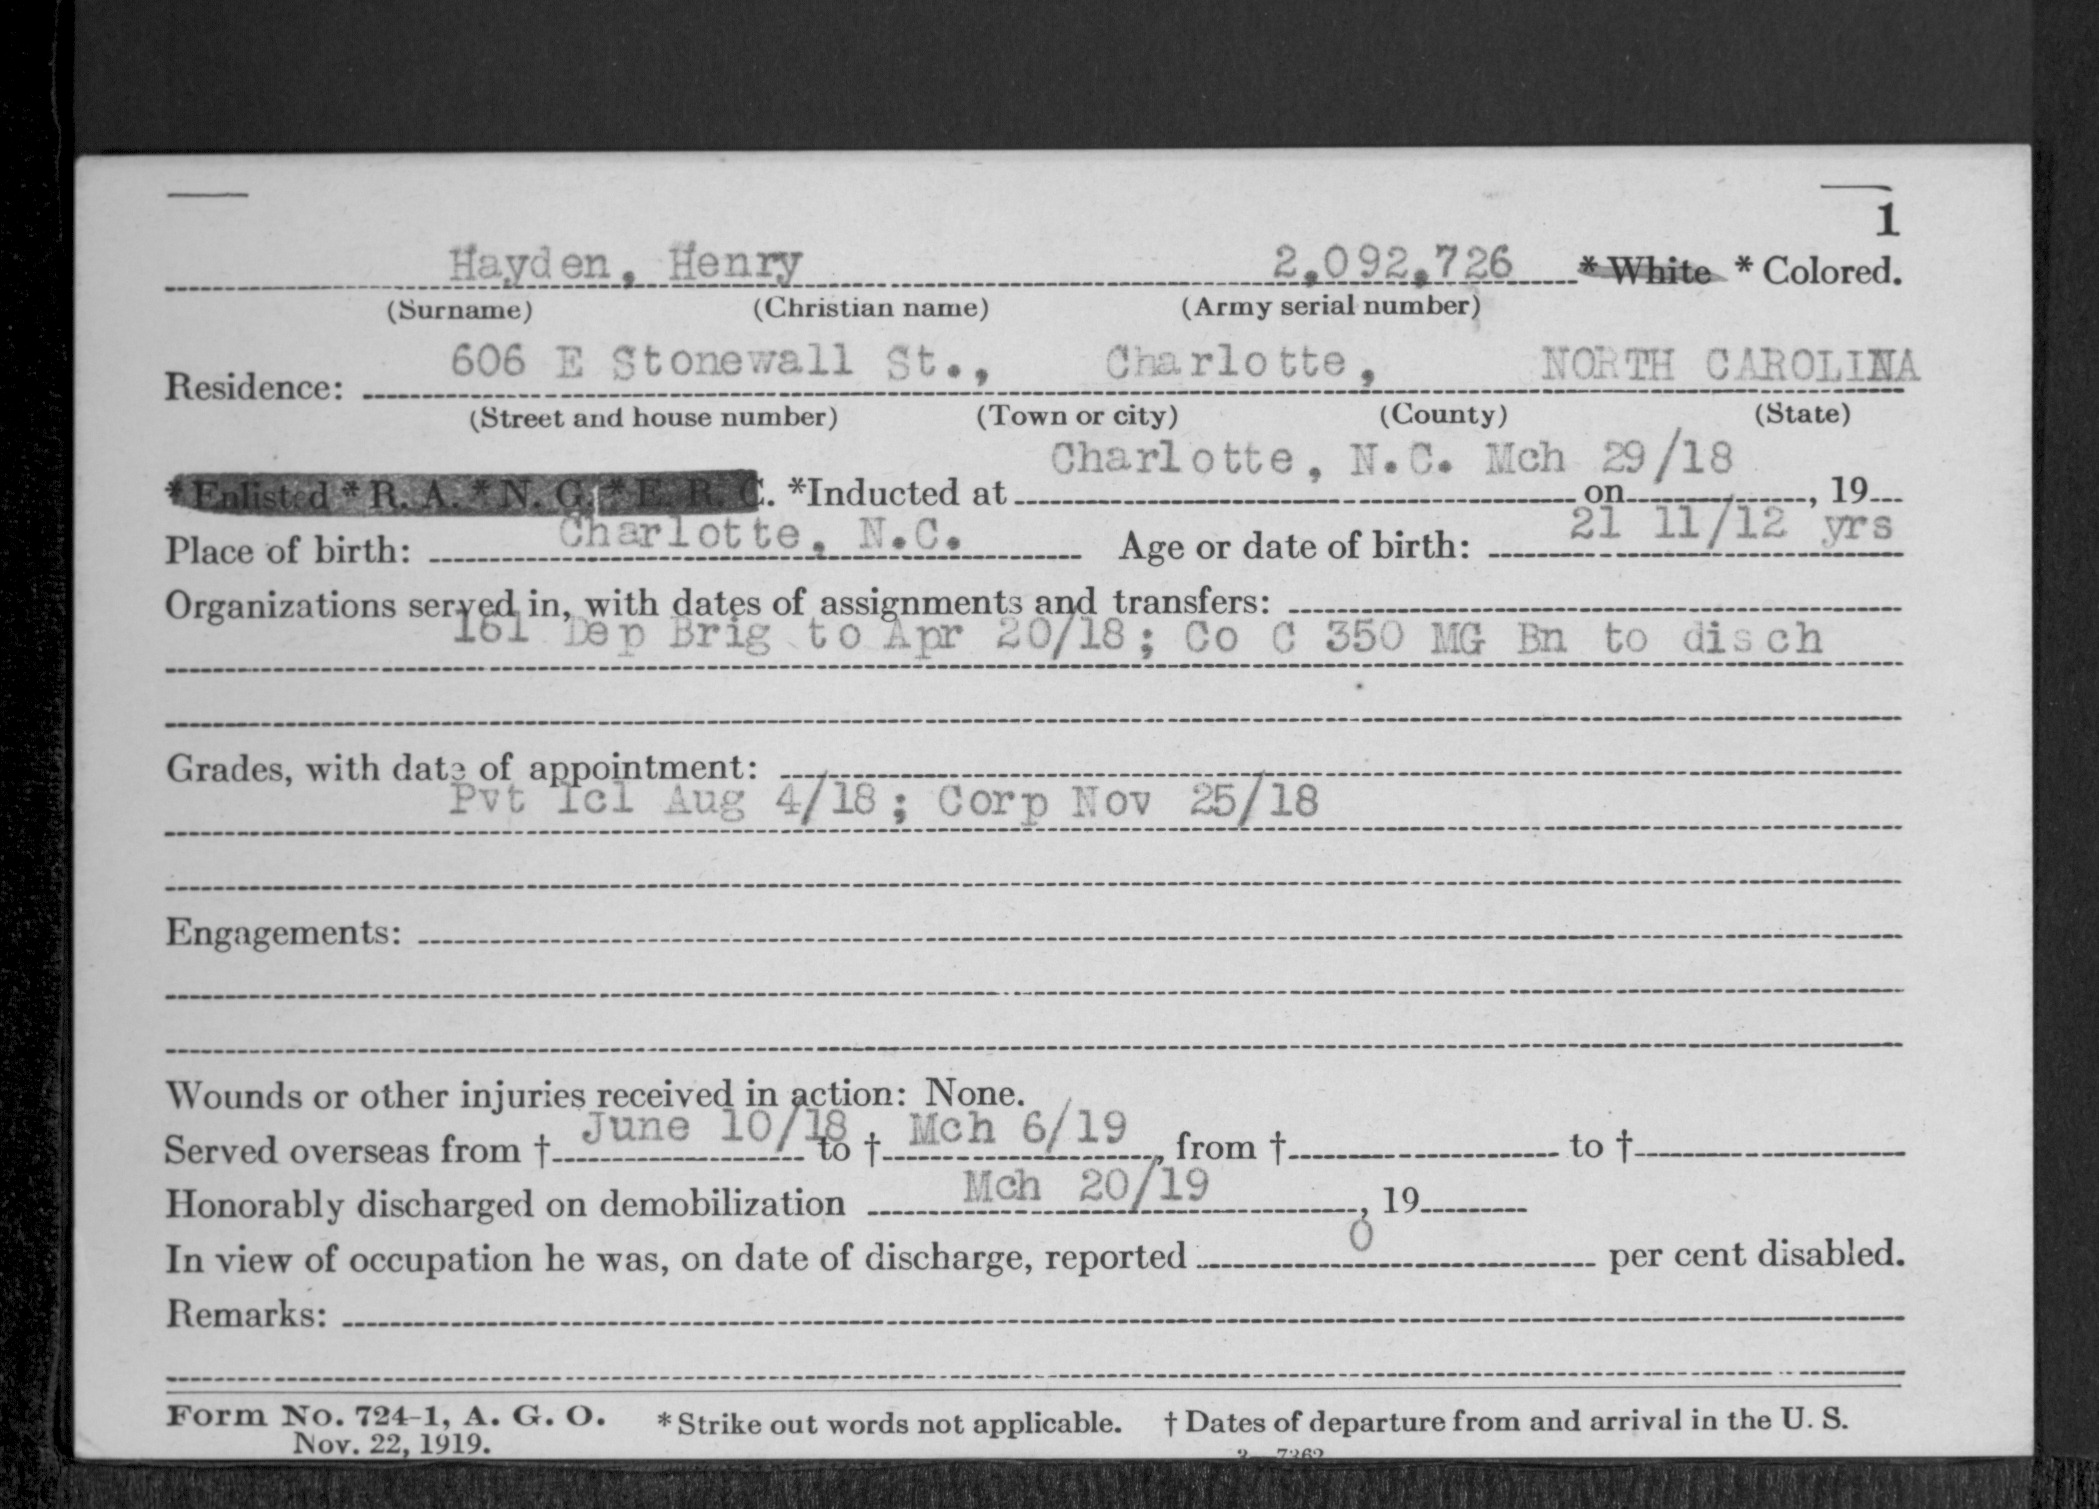 1
Hayden, Henry 2,092,726 *White *Colored.
(Surname) (Christian name) (Army serial number)
Residence: 606 E Stonewall St., Charlotte, NORTH CAROLINA
(Street and house number) (Town or city) (County) (State)
*Enlisted *R. A. *N. G. *E. R. C. *Inducted at Charlotte, N.C. Mch 29/18 on , 19
Place of birth: Charlotte, N.C. Age or date of birth: 21 11/12 yrs
Organizations served in, with dates of assignments and transfers:
161 Dep Brig to Apr 20/18; Co C 350 MG Bn to disch
Grades, with date of appointment:
Pvt 1cl Aug 4/18; Corp Nov 25/18
Engagements:
Wounds or other injuries received in action: None.
Served overseas from † June 10/18 to † Mch 6/19, from † to †
Honorably discharged on demobilization Mch 20/19, 19
In view of occupation he was, on date of discharge, reported 0 per cent disabled.
Remarks:
Form No. 724-1, A. G. O. *Strike out words not applicable. † Dates of departure from and arrival in the U. S.
Nov. 22, 1919.